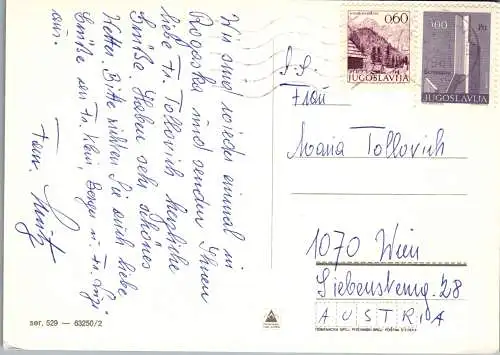 Wir sind wieder einmal in
Rogaska und senden Ihnen
liebe Fr. Tollovich herzliche
Grüße. Haben sehr schönes
Wetter. Bitte richten Sie auch liebe
Grüße an Fr. Klein, Berger u. Fr. Luzi
aus.
Fam.
0.60
JUGOSLAVIJA
100 Pa
JUGOSLAVIJA
S.g.
Frau
Maria Tollovich
1070 Wien
Siebensterng. 28
AUSTRIA
ser. 529 — 63250/2